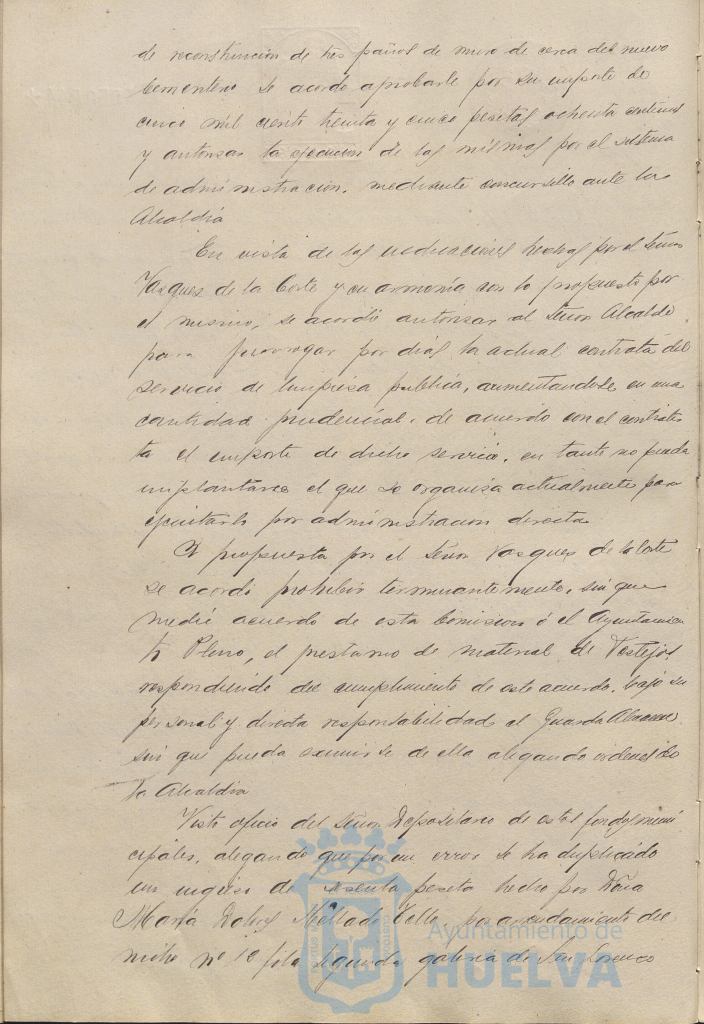 de reconstrucion de tres paños de muro de cerca del nuevo
Cementerio se acordo aprobarle por su importe de
cinco mil ciento treinta y cinco pesetas ochenta centimos
y autorizar la ejecucion de las mismas por el sistema
de administracion, mediante concursillo ante la
Alcaldia
En vista de las indicaciones hechas por el Señor
Vasques de la Corte y en armonia con lo propuesto por
el mismo, se acordó autorizar al Señor Alcalde
para prorrogar por dias la actual contrata del
servicio de limpieza publica, aumentandose en una
cantidad prudencial, de acuerdo con el contratis
ta el importe de dicho servicio, en tanto no pueda
implantarse el que se organiza actualmente para
ejecutarlo por administracion directa
A propuesta por el Señor Vasques de la Corte
se acordó prohibir terminantemente, sin que
medie acuerdo de esta Comision ó el Ayuntamien
to Pleno, el prestamo de material de Festejos,
respondiendo del cumplimiento de este acuerdo, bajo su
personal y directa responsabilidad el Guarda Almacen
sin que pueda eximirse de ella alegando ordenes de
la Alcaldia
Visto oficio del Señor Depositario de estos fondos muni
cipales, alegando que por un error se ha duplicado
un ingreso de sesenta pesetas hecho por Doña
Maria Dolores Mellado Tello por arrendamiento del
nicho nº 10 fila segunda galeria de San Lorenzo
Ayuntamiento de
HUELVA